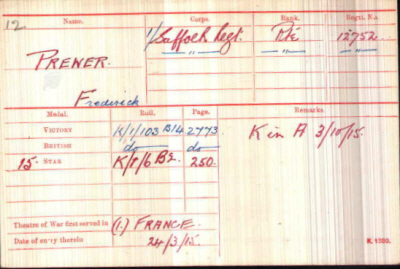 12 Name. Corps. Rank. Regtl. No.
PREWER. 1/Suffolk Regt. Pte 12752.
" " " "
Frederick
Medal. Roll. Page. Remarks.
VICTORY K/1/103 B14 2773 K in A 3/10/15.
BRITISH do do
15 STAR K/1/6 B2. 250.
Theatre of War first served in (1.) FRANCE.
Date of entry therein 24/3/15. K. 1380.